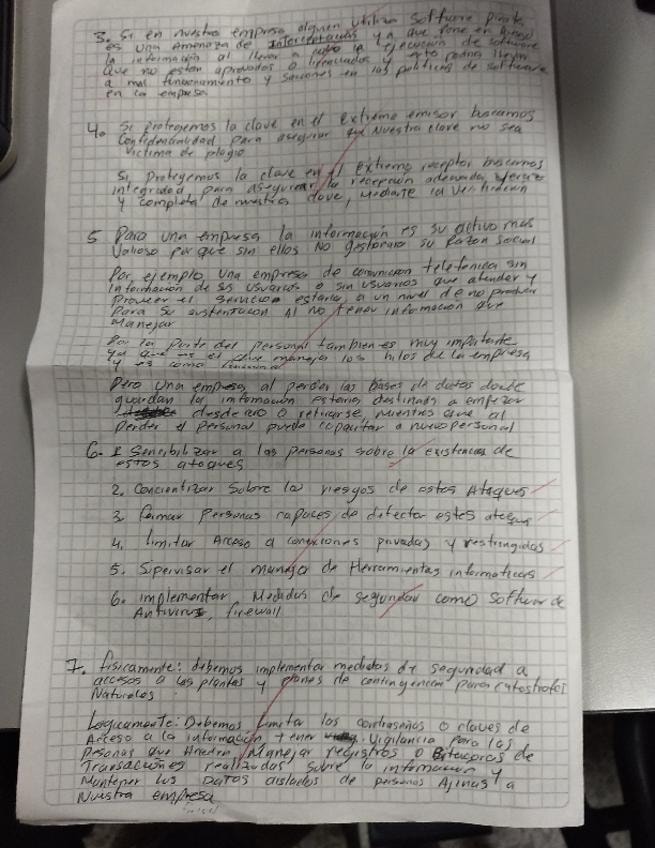 3. Si en nuestra empresa alguien utiliza Software Pirata
es una Amenaza de Interceptación ya que pone en riesgo
la información al llevar a cabo la ejecución de software
que no estan aprovados o licenciados y esto podria llevar
a mal funcionamiento y saciones en las politicas de software
en la empresa
4. Si protegemos la clave en el extremo emisor buscamos
Confidencialidad para asegurar que Nuestra clave no sea
victima de plagio
Si Protegemos la clave en el extremo receptor buscamos
integridad para asegurar la recepcion adecuada,
y completa de nuestra clave, mediante la verificacion
5 Para una empresa la información es su activo mas
Valioso por que sin ellos No gestionaria su Razon social
Por ejemplo una empresa de comunicacion telefonica sin
informacion de sus usuarios o sin usuarios que atender y
Proveer el servicio estaria a un nivel de no producir
Para su sustentacion al no tener informacion que
Manejar
Por la parte del personal tambien es muy importante
ya que es el que maneja los hilos de la empresa
y es como
Pero una empresa al perder las bases de datos donde
guardan la informacion estaria destinada a empezar
desde zero o retirarse, mientras que al
perder el personal puede capacitar a nuevo personal
6. 1 Sencibilizar a las personas sobre la existencia de
estos ataques
2. Concientizar Sobre los riesgos de estos Ataques
3. formar personas capaces de detectar estos ataques
4. limitar Acceso a conexiones privadas y restringidas
5. Supervisar el manejo de Herramientas informaticas
6. implementar Medidas de seguridad como Software de
Antivirus, firewall
7. fisicamente: debemos implementar medidas de seguridad a
accesos a las plantas y planes de contingencia para catastrofes
Naturales
Logicamente: Debemos Limitar las contraseñas o claves de
Acceso a la informacion tener vigilancia para las
Personas que Manejar registros o Bitacoras de
Transacciones realizadas sobre la informacion y
Mantener los Datos aislados de personas Ajenas a
Nuestra empresa